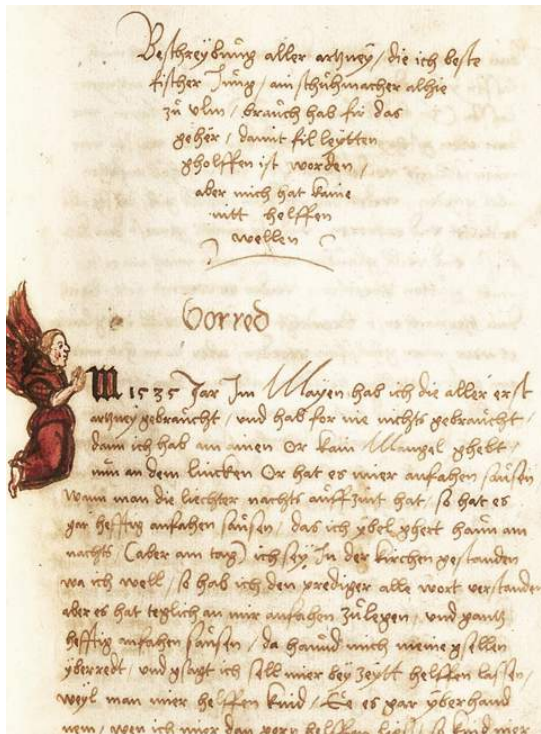 Beschreybung aller artzney / die ich beste
fischer Jung / ain schuhmacher alhie
zu vlm / brauch hab fir das
geher / damit fil leytten
gholffen ist worden /
aber mich hat kaine
nitt helffen
wellen
Vorred
M 1535 Jar Im Mayen hab ich die aller erst
artzney gebraucht / vnd hab for nie nichts gebraucht /
dann ich hab an ainen Or kain Mangel ghebt /
nun an dem lincken Or hat es mier anfahen sausen
wann man die liechter nachts auff zint hat / so hat es
gar hefftig anfahen sausen / das ich ybel ghert haun am
nachts / (aber am tag) ich sey In der kirchen gestanden
wa ich well / so hab ich den prediger alle wort verstanden
aber es hat teglich an mir anfahen zulegen / vnd gantz
hefftig anfahen sausen / da haund mich meine gsellen
yberredt / vnd gsagt ich sell mier bey zeytt helffen lassen /
weyl man mier helffen kind / Ee es gar yberhand
nem / wen ich mier dan gern helffen so kind mier